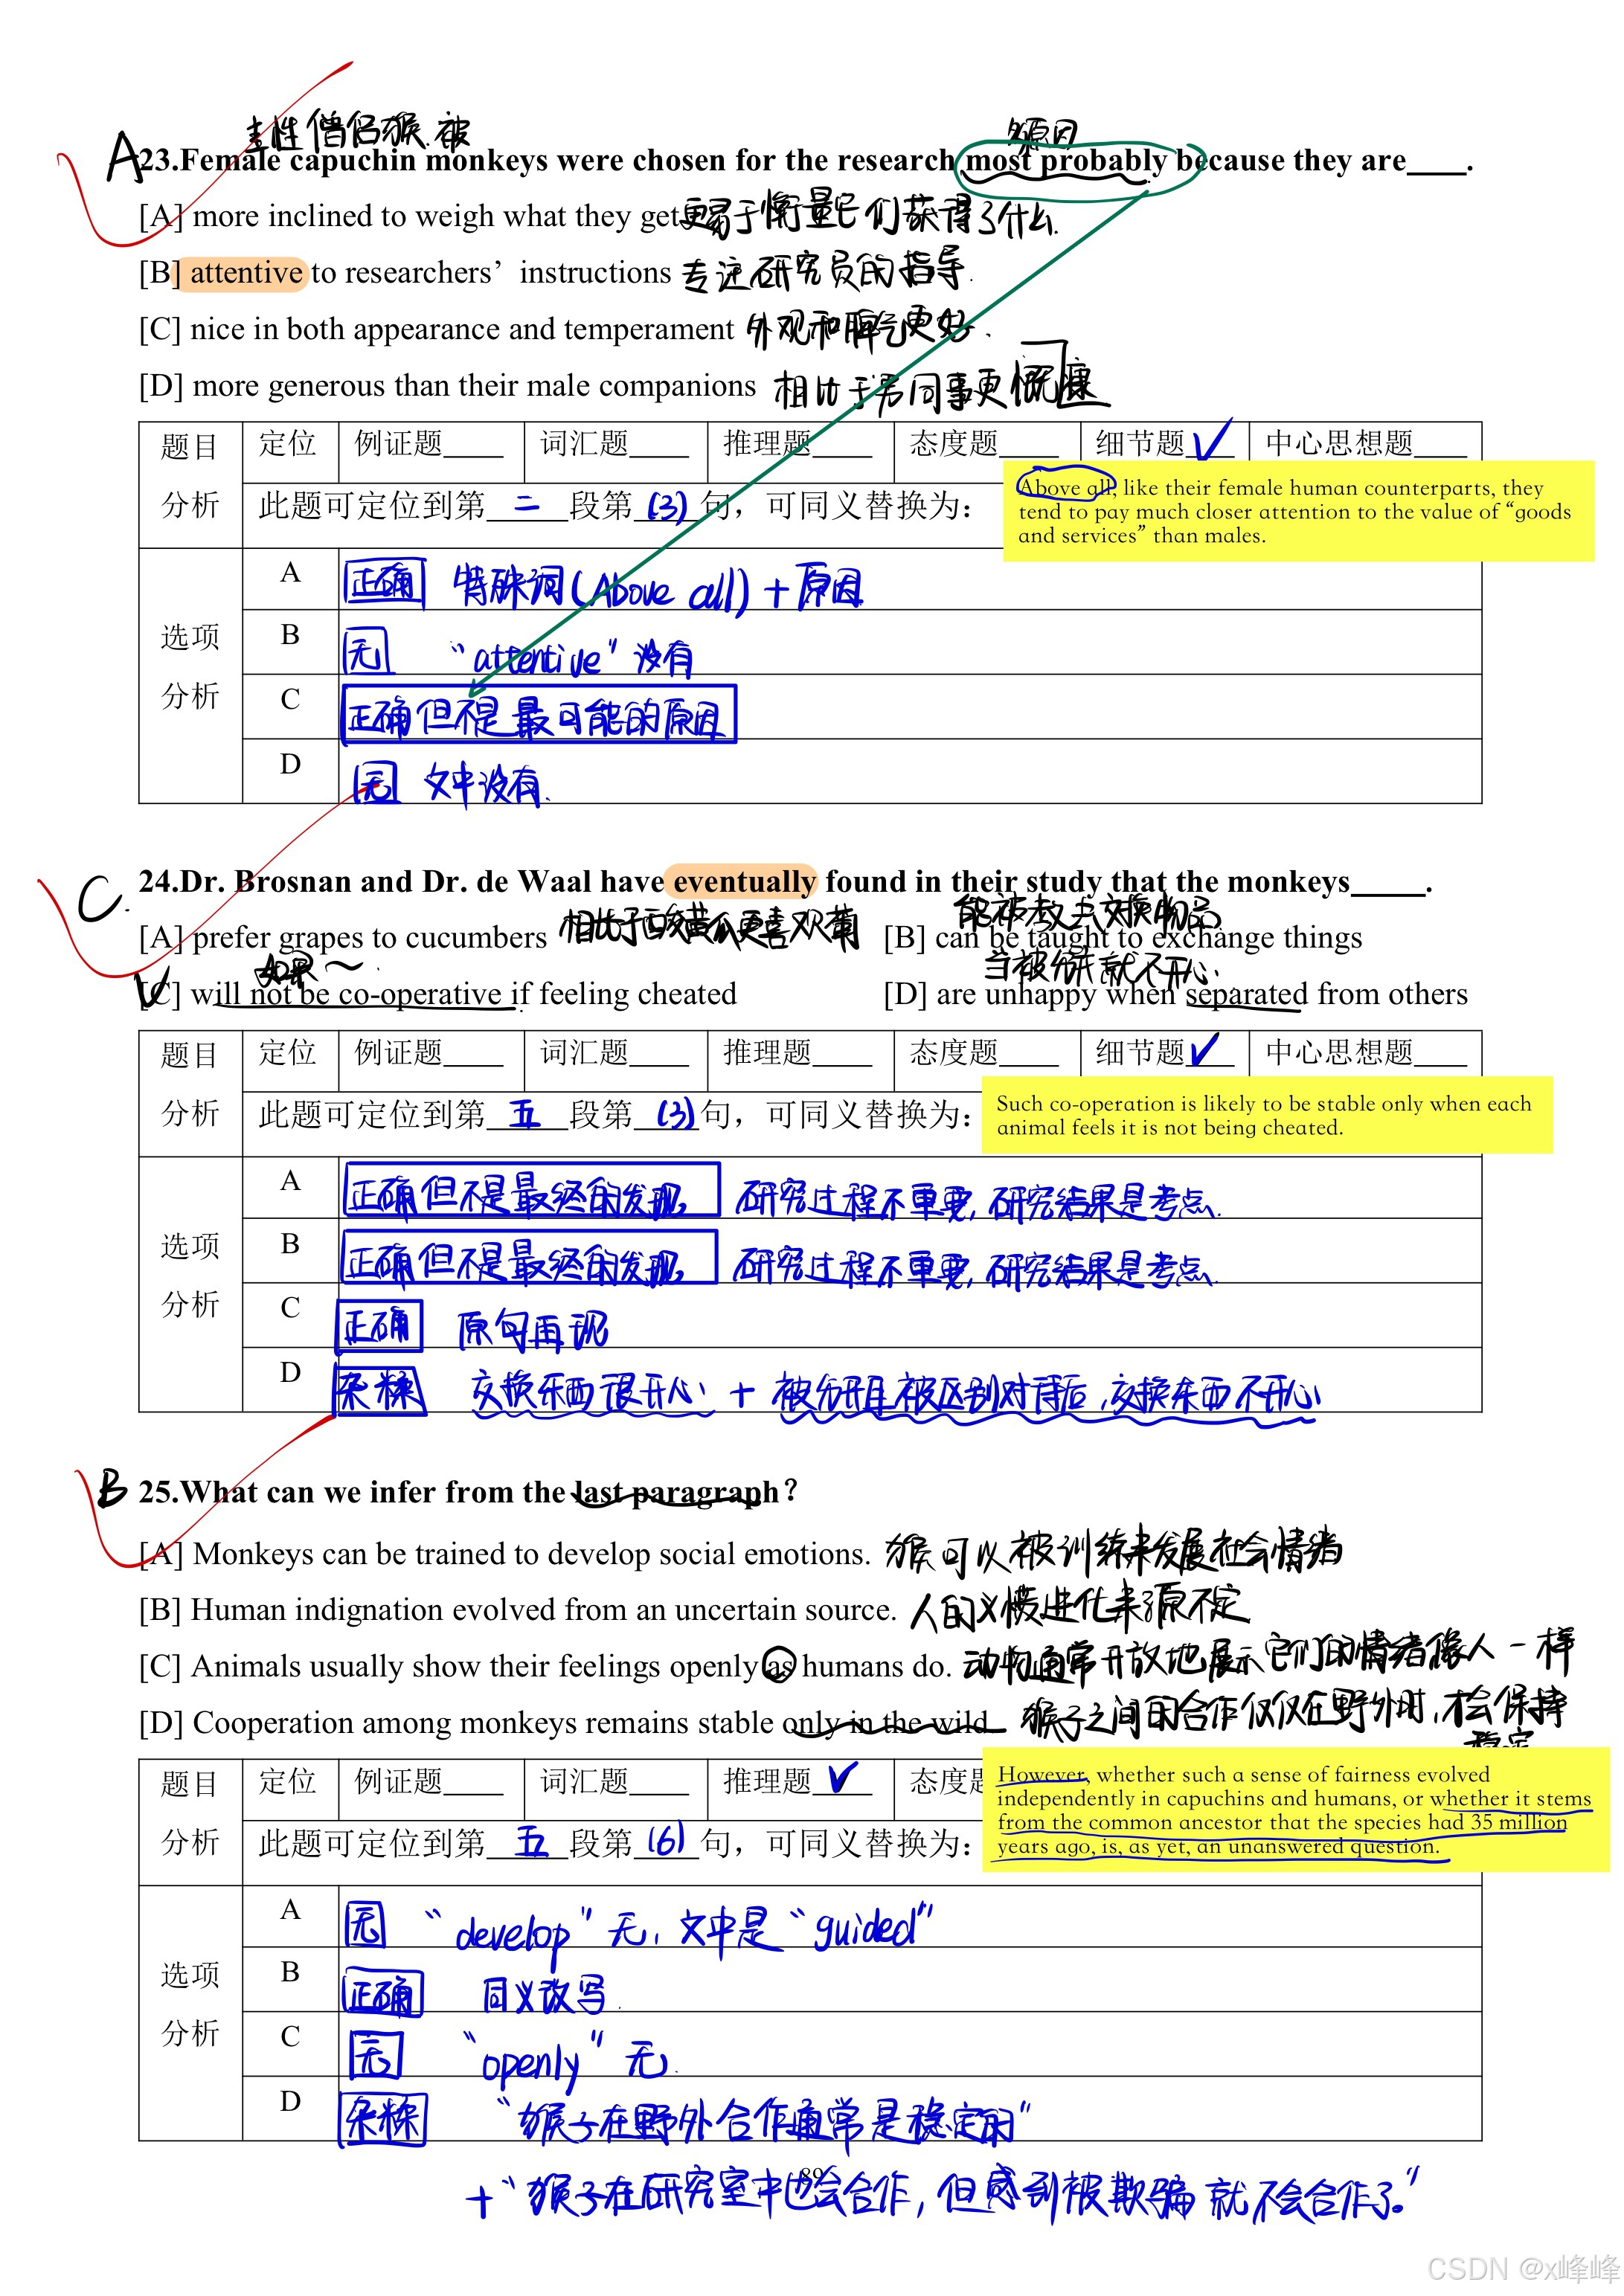 女性僧侣猴.被
原因
A 23.Female capuchin monkeys were chosen for the research most probably because they are____.
[A] more inclined to weigh what they get 更易于衡量它们获得了什么.
[B] attentive to researchers’ instructions 专注研究员的指导.
[C] nice in both appearance and temperament 外观和脾气更好.
[D] more generous than their male companions 相比于男同事更慷慨
题目分析 定位 例证题____ 词汇题____ 推理题____ 态度题____ 细节题 ✓ 中心思想题____
此题可定位到第 二 段第 (3) 句，可同义替换为：
Above all, like their female human counterparts, they
tend to pay much closer attention to the value of “goods
and services” than males.
选项分析
A 正确 特殊词(Above all)+原因
B 无 “attentive”没有
C 正确但不是最可能的原因
D 无 文中没有.
C. 24.Dr. Brosnan and Dr. de Waal have eventually found in their study that the monkeys_____.
能被教去交换物品
[A] prefer grapes to cucumbers [B] can be taught to exchange things
如果~. 当被分开就不开心.
[C] will not be co-operative if feeling cheated [D] are unhappy when separated from others
题目分析 定位 例证题____ 词汇题____ 推理题____ 态度题____ 细节题 ✓ 中心思想题____
此题可定位到第 五 段第 (3) 句，可同义替换为：
Such co-operation is likely to be stable only when each
animal feels it is not being cheated.
选项分析
A 正确但不是最终的发现, 研究过程不重要, 研究结果是考点.
B 正确但不是最终的发现, 研究过程不重要, 研究结果是考点.
C 正确 原句再现
D 杂糅 交换东西很开心 + 被分开且被区别对待后,交换东西不开心
B 25.What can we infer from the last paragraph？
[A] Monkeys can be trained to develop social emotions. 猴可以被训练来发展社会情绪
[B] Human indignation evolved from an uncertain source. 人的义愤进化来源不定
[C] Animals usually show their feelings openly as humans do. 动物通常开放地展示它们的情绪像人一样
[D] Cooperation among monkeys remains stable only in the wild. 猴子之间的合作仅仅在野外时,才会保持
稳定
题目分析 定位 例证题____ 词汇题____ 推理题 ✓ 态度题
此题可定位到第 五 段第 (6) 句，可同义替换为：
However, whether such a sense of fairness evolved
independently in capuchins and humans, or whether it stems
from the common ancestor that the species had 35 million
years ago, is, as yet, an unanswered question.
选项分析
A 无 “develop”无, 文中是“guided”
B 正确 同义改写.
C 无 “openly”无.
D 杂糅 “猴子在野外合作通常是稳定的”
89
+“猴子在研究室中也会合作, 但感到被欺骗就不会合作了.”
CSDN @x峰峰